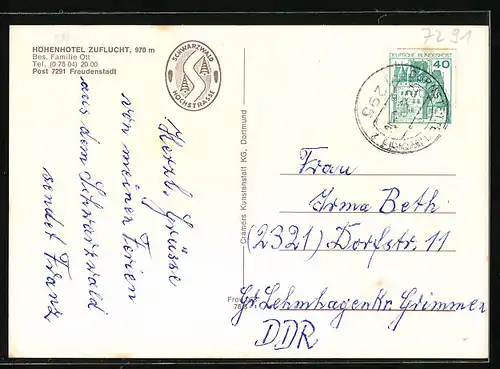 7291
HÖHENHOTEL ZUFLUCHT, 970 m
Bes. Familie Ott
Tel. (0 78 04) 20 00
Post 7291 Freudenstadt
SCHWARZWALD
HOCHSTRASSE
DEUTSCHE BUNDESPOST
40
7295
Herzl. Grüsse
von meinen Ferien
aus dem Schwarzwald
sendet Franz
Cramers Kunstanstalt KG, Dortmund
Frau
Irma Beth
(2321) Dorfstr. 11
Gr. Lehmhagen Kr. Grimmen
DDR